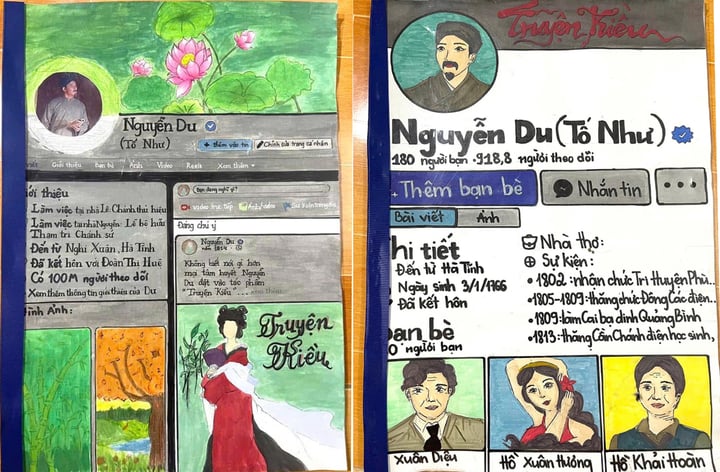 Nguyễn Du
(Tố Như)
+ thêm vào tin
Chỉnh sửa trang cá nhân
Giới thiệu
Bạn bè
Ảnh
Video
Reels
Xem thêm
iới thiệu
Làm việc tại nhà Lê Chánh thủ hiệu
Làm việc tại nhà Nguyễn: Lễ bộ hữu
Tham tri Chánh sứ
Đến từ Nghi Xuân, Hà Tĩnh
Đã kết hôn với Đoàn Thị Huệ
Có 100M người theo dõi
Xem thêm thông tin giới thiệu của Du
Ảnh:
Bạn đang nghĩ gì?
Video trực tiếp
Ảnh/video
Đáng chú ý
Nguyễn Du
Không biết nói gì hơn
mai tâm huyết Nguyễn
Du đặt vào tác phẩm
"Truyện Kiều" ... xem thêm
Truyện
Kiều
Truyện Kiều
Nguyễn Du (Tố Như)
180 người bạn · 918,8 người theo dõi
Thêm bạn bè
Nhắn tin
...
Bài viết
Ảnh
hi tiết
Đến từ Hà Tĩnh
Ngày sinh 3/1/1766
Đã kết hôn
bạn bè
0 người bạn
Nhà thơ:
Sự kiện:
• 1802: nhận chức Tri Huyện Phù...
• 1805-1809: thăng chức Đông Các điện..
• 1809: làm Cai bạ dinh Quảng Bình
• 1813: thăng Cần Chánh điện học sinh,
Xuân Diệu
Hồ Xuân Hương
Hồ Khải Hoàn